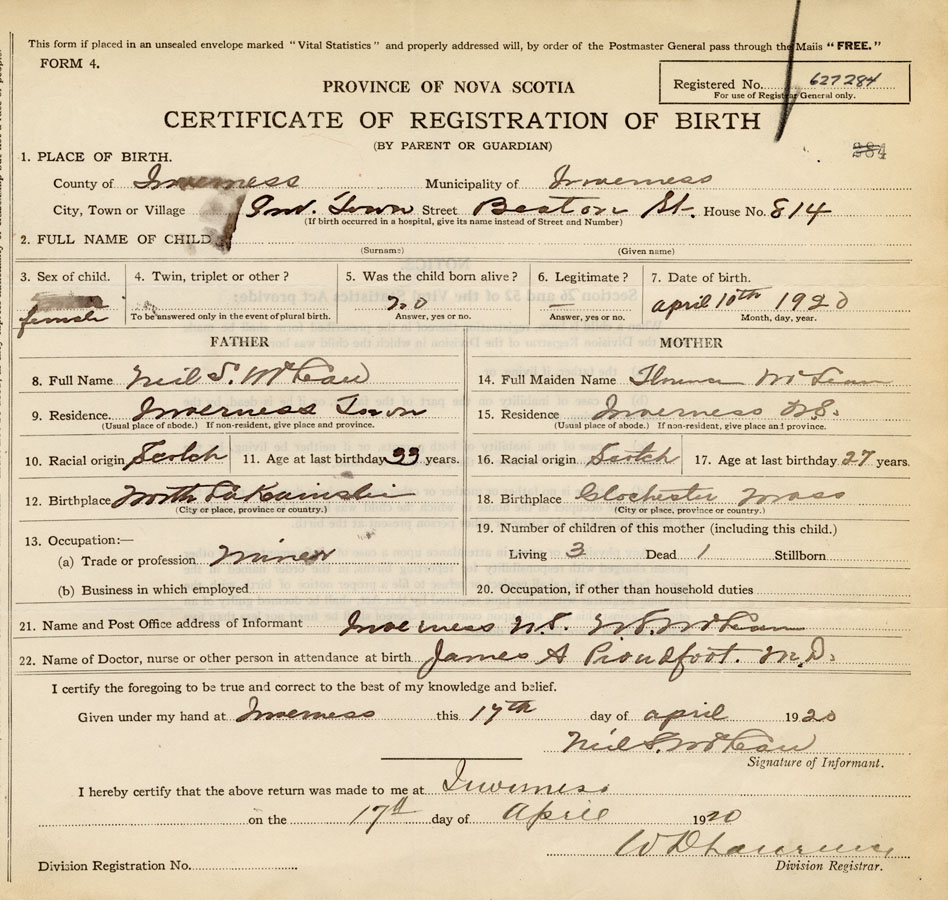 This form if placed in an unsealed envelope marked "Vital Statistics" and properly addressed will, by order of the Postmaster General pass through the Mails "FREE."
FORM 4.
Registered No. 627284
For use of Registrar General only.
PROVINCE OF NOVA SCOTIA
CERTIFICATE OF REGISTRATION OF BIRTH
(BY PARENT OR GUARDIAN)
284
1. PLACE OF BIRTH.
County of Inverness Municipality of Inverness
City, Town or Village Inv. Town Street Beaton St. House No. 814
(If birth occurred in a hospital, give its name instead of Street and Number)
2. FULL NAME OF CHILD
(Surname) (Given name)
3. Sex of child. 4. Twin, triplet or other? 5. Was the child born alive? 6. Legitimate? 7. Date of birth.
female no — april 10th 1920
To be answered only in the event of plural birth. Answer, yes or no. Answer, yes or no. Month, day, year.
FATHER MOTHER
8. Full Name Neil S. McLean 14. Full Maiden Name Florence McLean
9. Residence. Inverness Town 15. Residence Inverness N.S.
(Usual place of abode.) If non-resident, give place and province. (Usual place of abode.) If non-resident, give place and province.
10. Racial origin Scotch 11. Age at last birthday 33 years. 16. Racial origin Scotch 17. Age at last birthday 27 years.
12. Birthplace North 18. Birthplace Glochester Mass
(City or place, province or country.) (City or place, province or country.)
19. Number of children of this mother (including this child.)
13. Occupation:—
(a) Trade or profession Miner Living 3 Dead 1 Stillborn
(b) Business in which employed 20. Occupation, if other than household duties
21. Name and Post Office address of Informant Inverness N.S. McLean
22. Name of Doctor, nurse or other person in attendance at birth James A Proudfoot. M.D.
I certify the foregoing to be true and correct to the best of my knowledge and belief.
Given under my hand at Inverness this 17th day of april 1920
Neil S. McLean
Signature of Informant.
I hereby certify that the above return was made to me at Inverness
on the 17th day of April 1920
W D Lawrence
Division Registration No. Division Registrar.